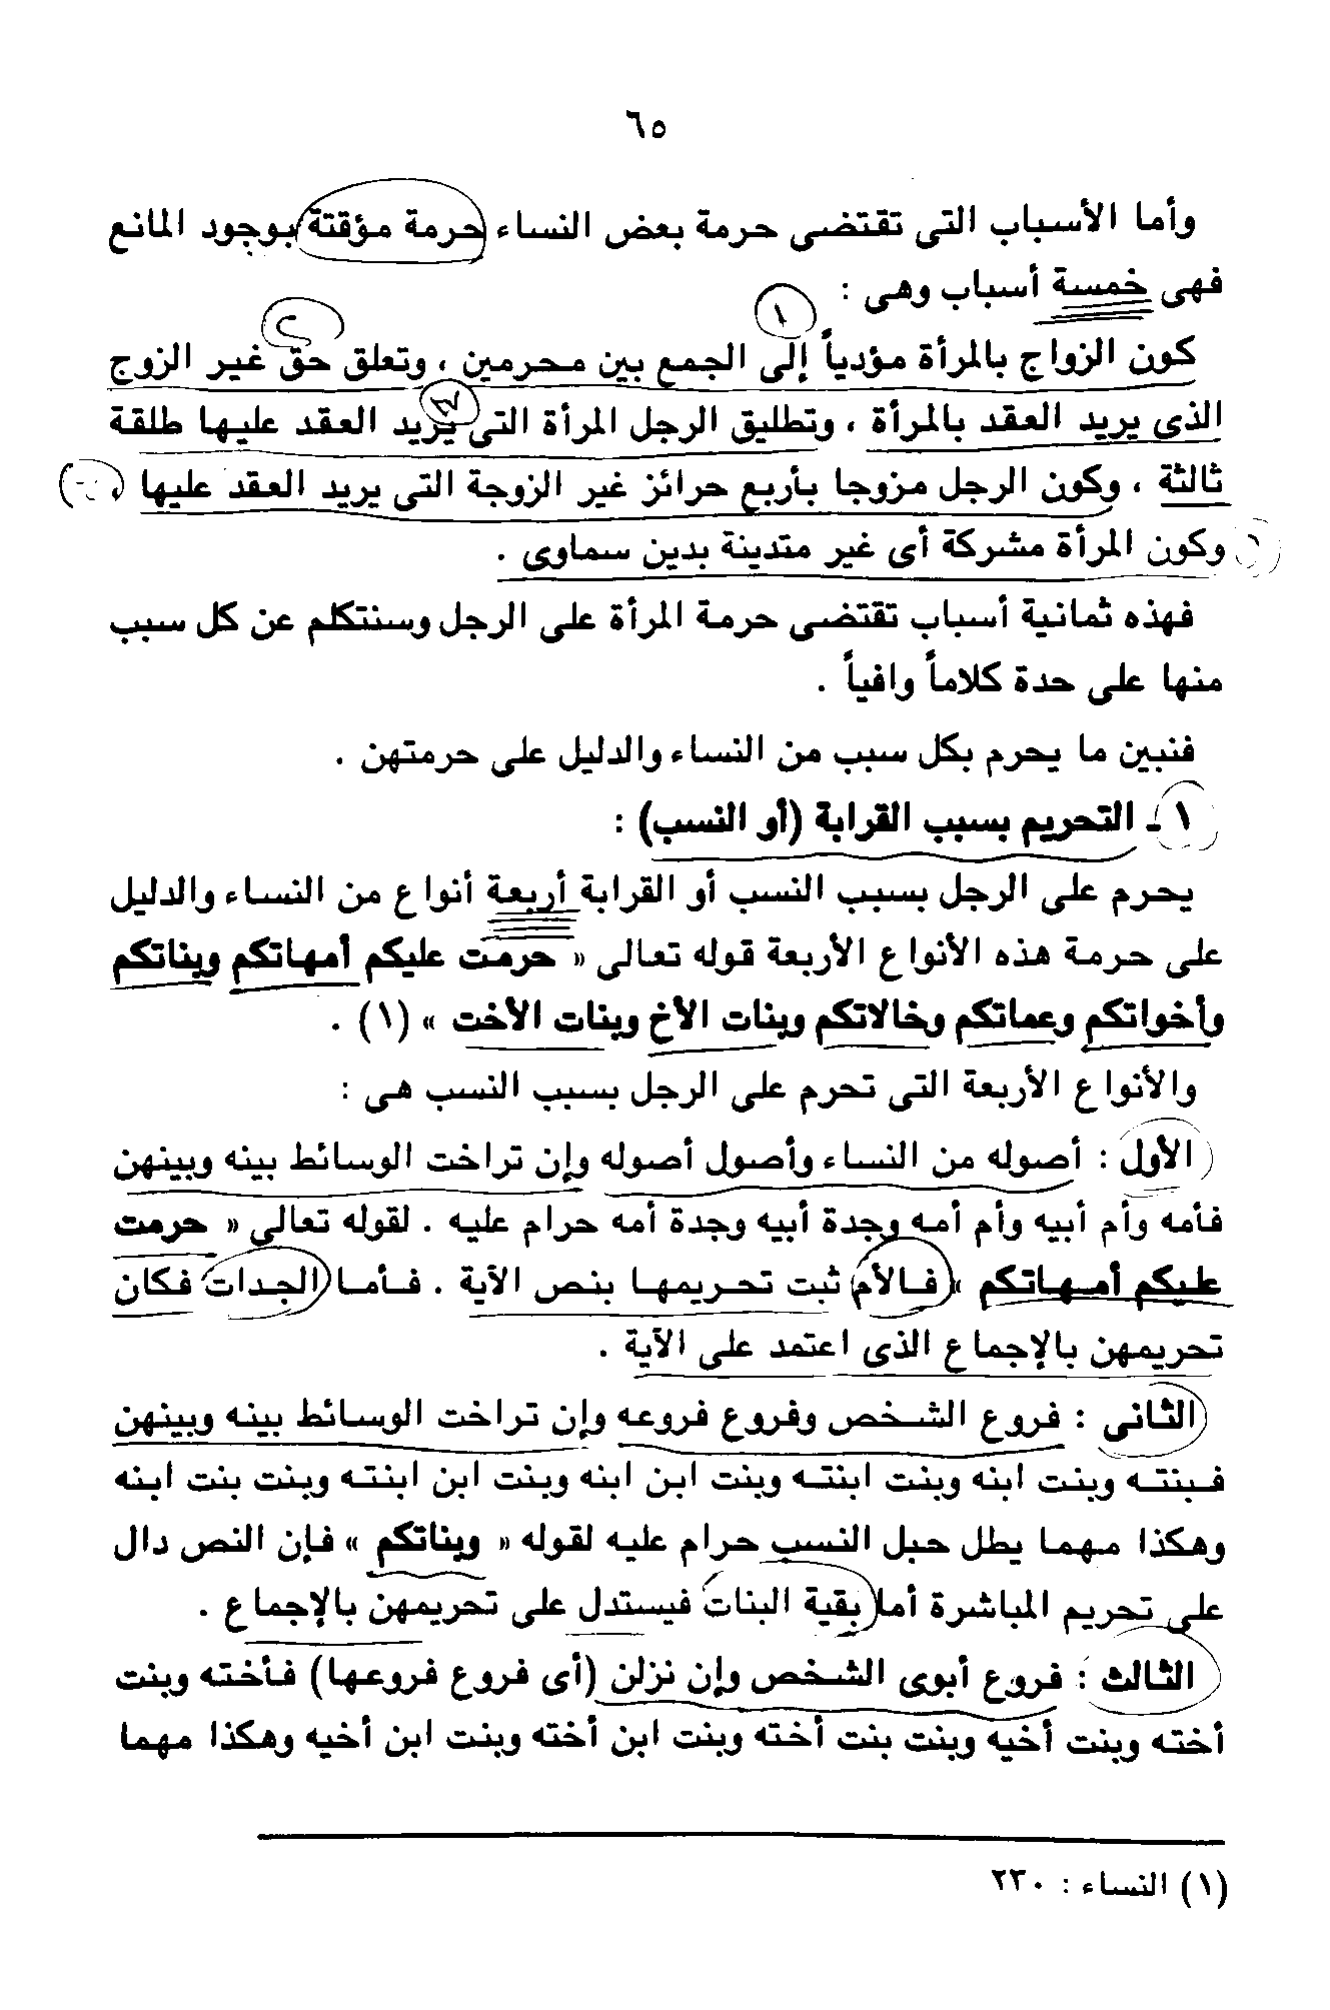 ٦٥
وأما الأسباب التى تقتضى حرمة بعض النساء حرمة مؤقتة بوجود المانع
فهى خمسة أسباب وهى :
١
٢
كون الزواج بالمرأة مؤدياً إلى الجمع بين محرمين ، وتعلق حق غير الزوج
٣
الذى يريد العقد بالمرأة ، وتطليق الرجل المرأة التى يريد العقد عليها طلقة
ثالثة ، وكون الرجل مزوجا بأربع حرائز غير الزوجة التى يريد العقد عليها ،
وكون المرأة مشركة أى غير متدينة بدين سماوى .
فهذه ثمانية أسباب تقتضى حرمة المرأة على الرجل وسنتكلم عن كل سبب
منها على حدة كلاماً وافياً .
فنبين ما يحرم بكل سبب من النساء والدليل على حرمتهن .
١ ـ التحريم بسبب القرابة (أو النسب) :
يحرم على الرجل بسبب النسب أو القرابة أربعة أنواع من النساء والدليل
على حرمة هذه الأنواع الأربعة قوله تعالى « حرمت عليكم أمهاتكم وبناتكم
وأخواتكم وعماتكم وخالاتكم وبنات الأخ وبنات الأخت » (١) .
والأنواع الأربعة التى تحرم على الرجل بسبب النسب هى :
الأول : أصوله من النساء وأصول أصوله وإن تراخت الوسائط بينه وبينهن
فأمه وأم أبيه وأم أمه وجدة أبيه وجدة أمه حرام عليه . لقوله تعالى « حرمت
عليكم أمهاتكم » فالأم ثبت تحريمها بنص الآية . فأما الجدات فكان
تحريمهن بالإجماع الذى اعتمد على الآية .
الثانى : فروع الشخص وفروع فروعه وإن تراخت الوسائط بينه وبينهن
فبنته وبنت ابنه وبنت ابنته وبنت ابن ابنه وبنت ابن ابنته وبنت بنت ابنه
وهكذا مهما يطل حبل النسب حرام عليه لقوله « وبناتكم » فإن النص دال
على تحريم المباشرة أما بقية البنات فيستدل على تحريمهن بالإجماع .
الثالث : فروع أبوى الشخص وإن نزلن (أى فروع فروعها) فأخته وبنت
أخته وبنت أخيه وبنت بنت أخته وبنت ابن أخته وبنت ابن أخيه وهكذا مهما
(١) النساء : ٢٣٠